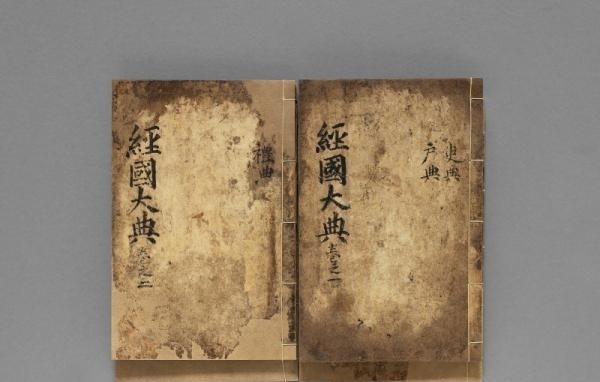 經國大典
卷之一
吏典
戶典
經國大典
卷之二
禮典